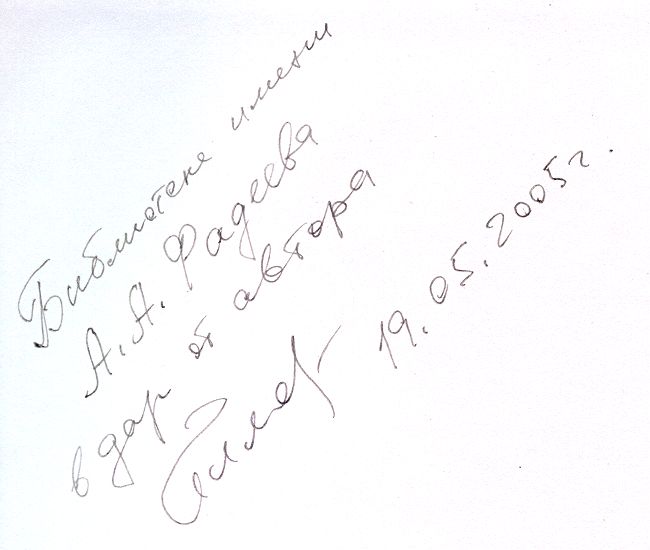 Библиотеке имени
А.А. Фадеева
в дар от автора
19.05.2005г.